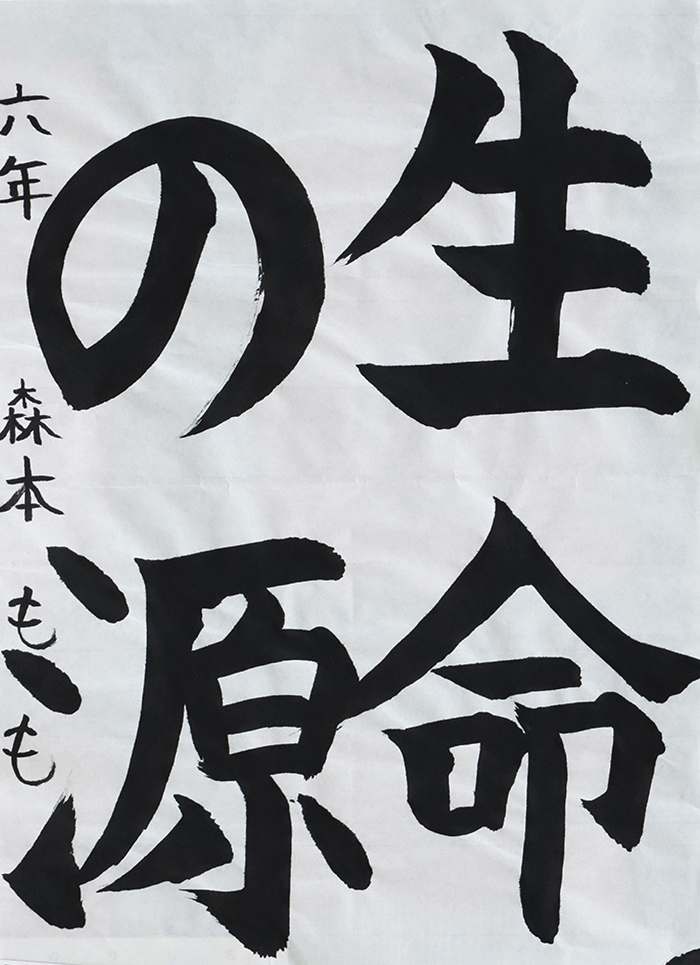 生命
の源
六年 森本 もも